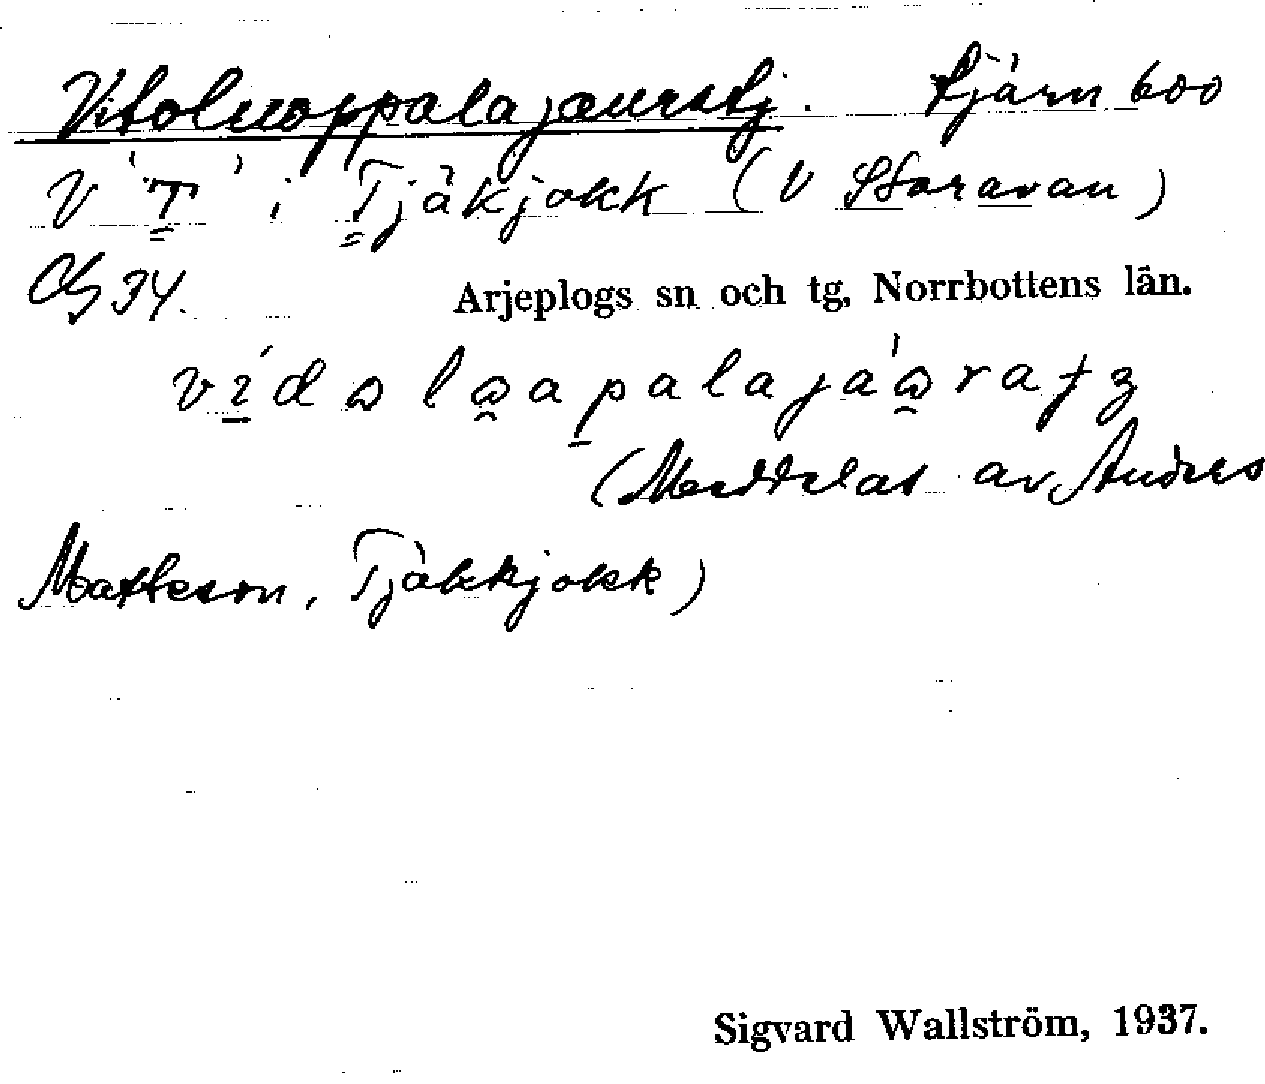 Vitoluoppalajaurstj. tjärn 600
V 'T' i Tjäkjokk (V Storavan)
34.
Arjeplogs sn och tg, Norrbottens län.
(Meddelat av Anders
Matteson, Tjäkkjokk)
Sigvard Wallström, 1937.